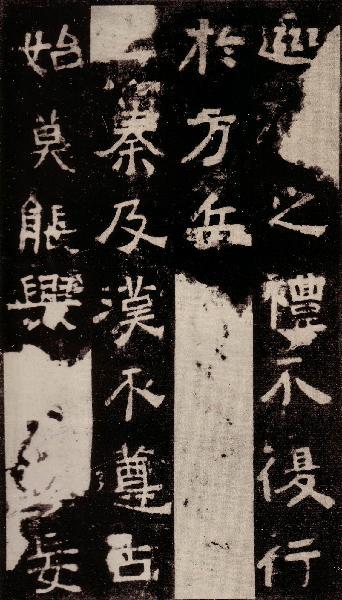 巡之禮不復行
於方岳
秦及漢不遵古
始莫能妄